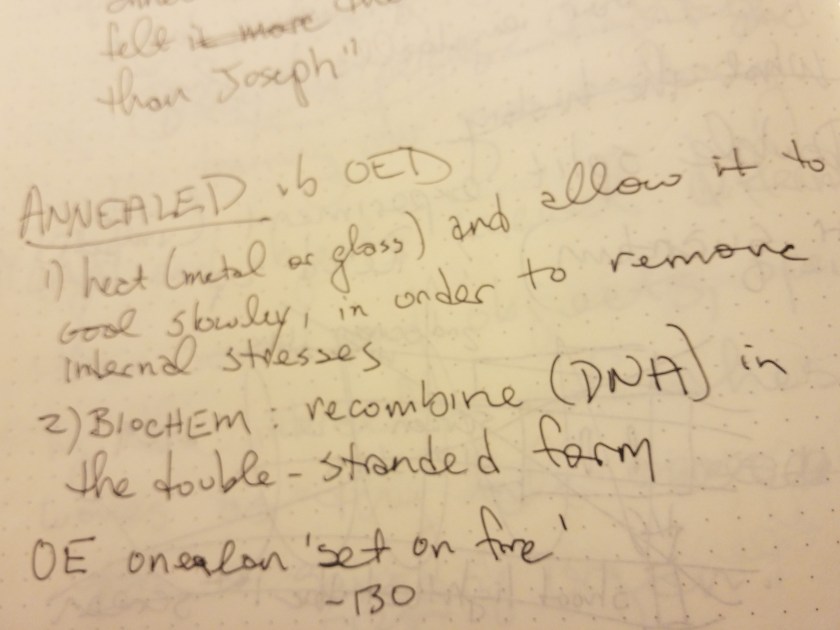 felt it more
than Joseph"
ANNEALED vb OED
1) heat (metal or glass) and allow it to
cool slowley, in order to remove
internal stresses
2) BIOCHEM: recombine (DNA) in
the double-stranded form
OE onealan 'set on fire'